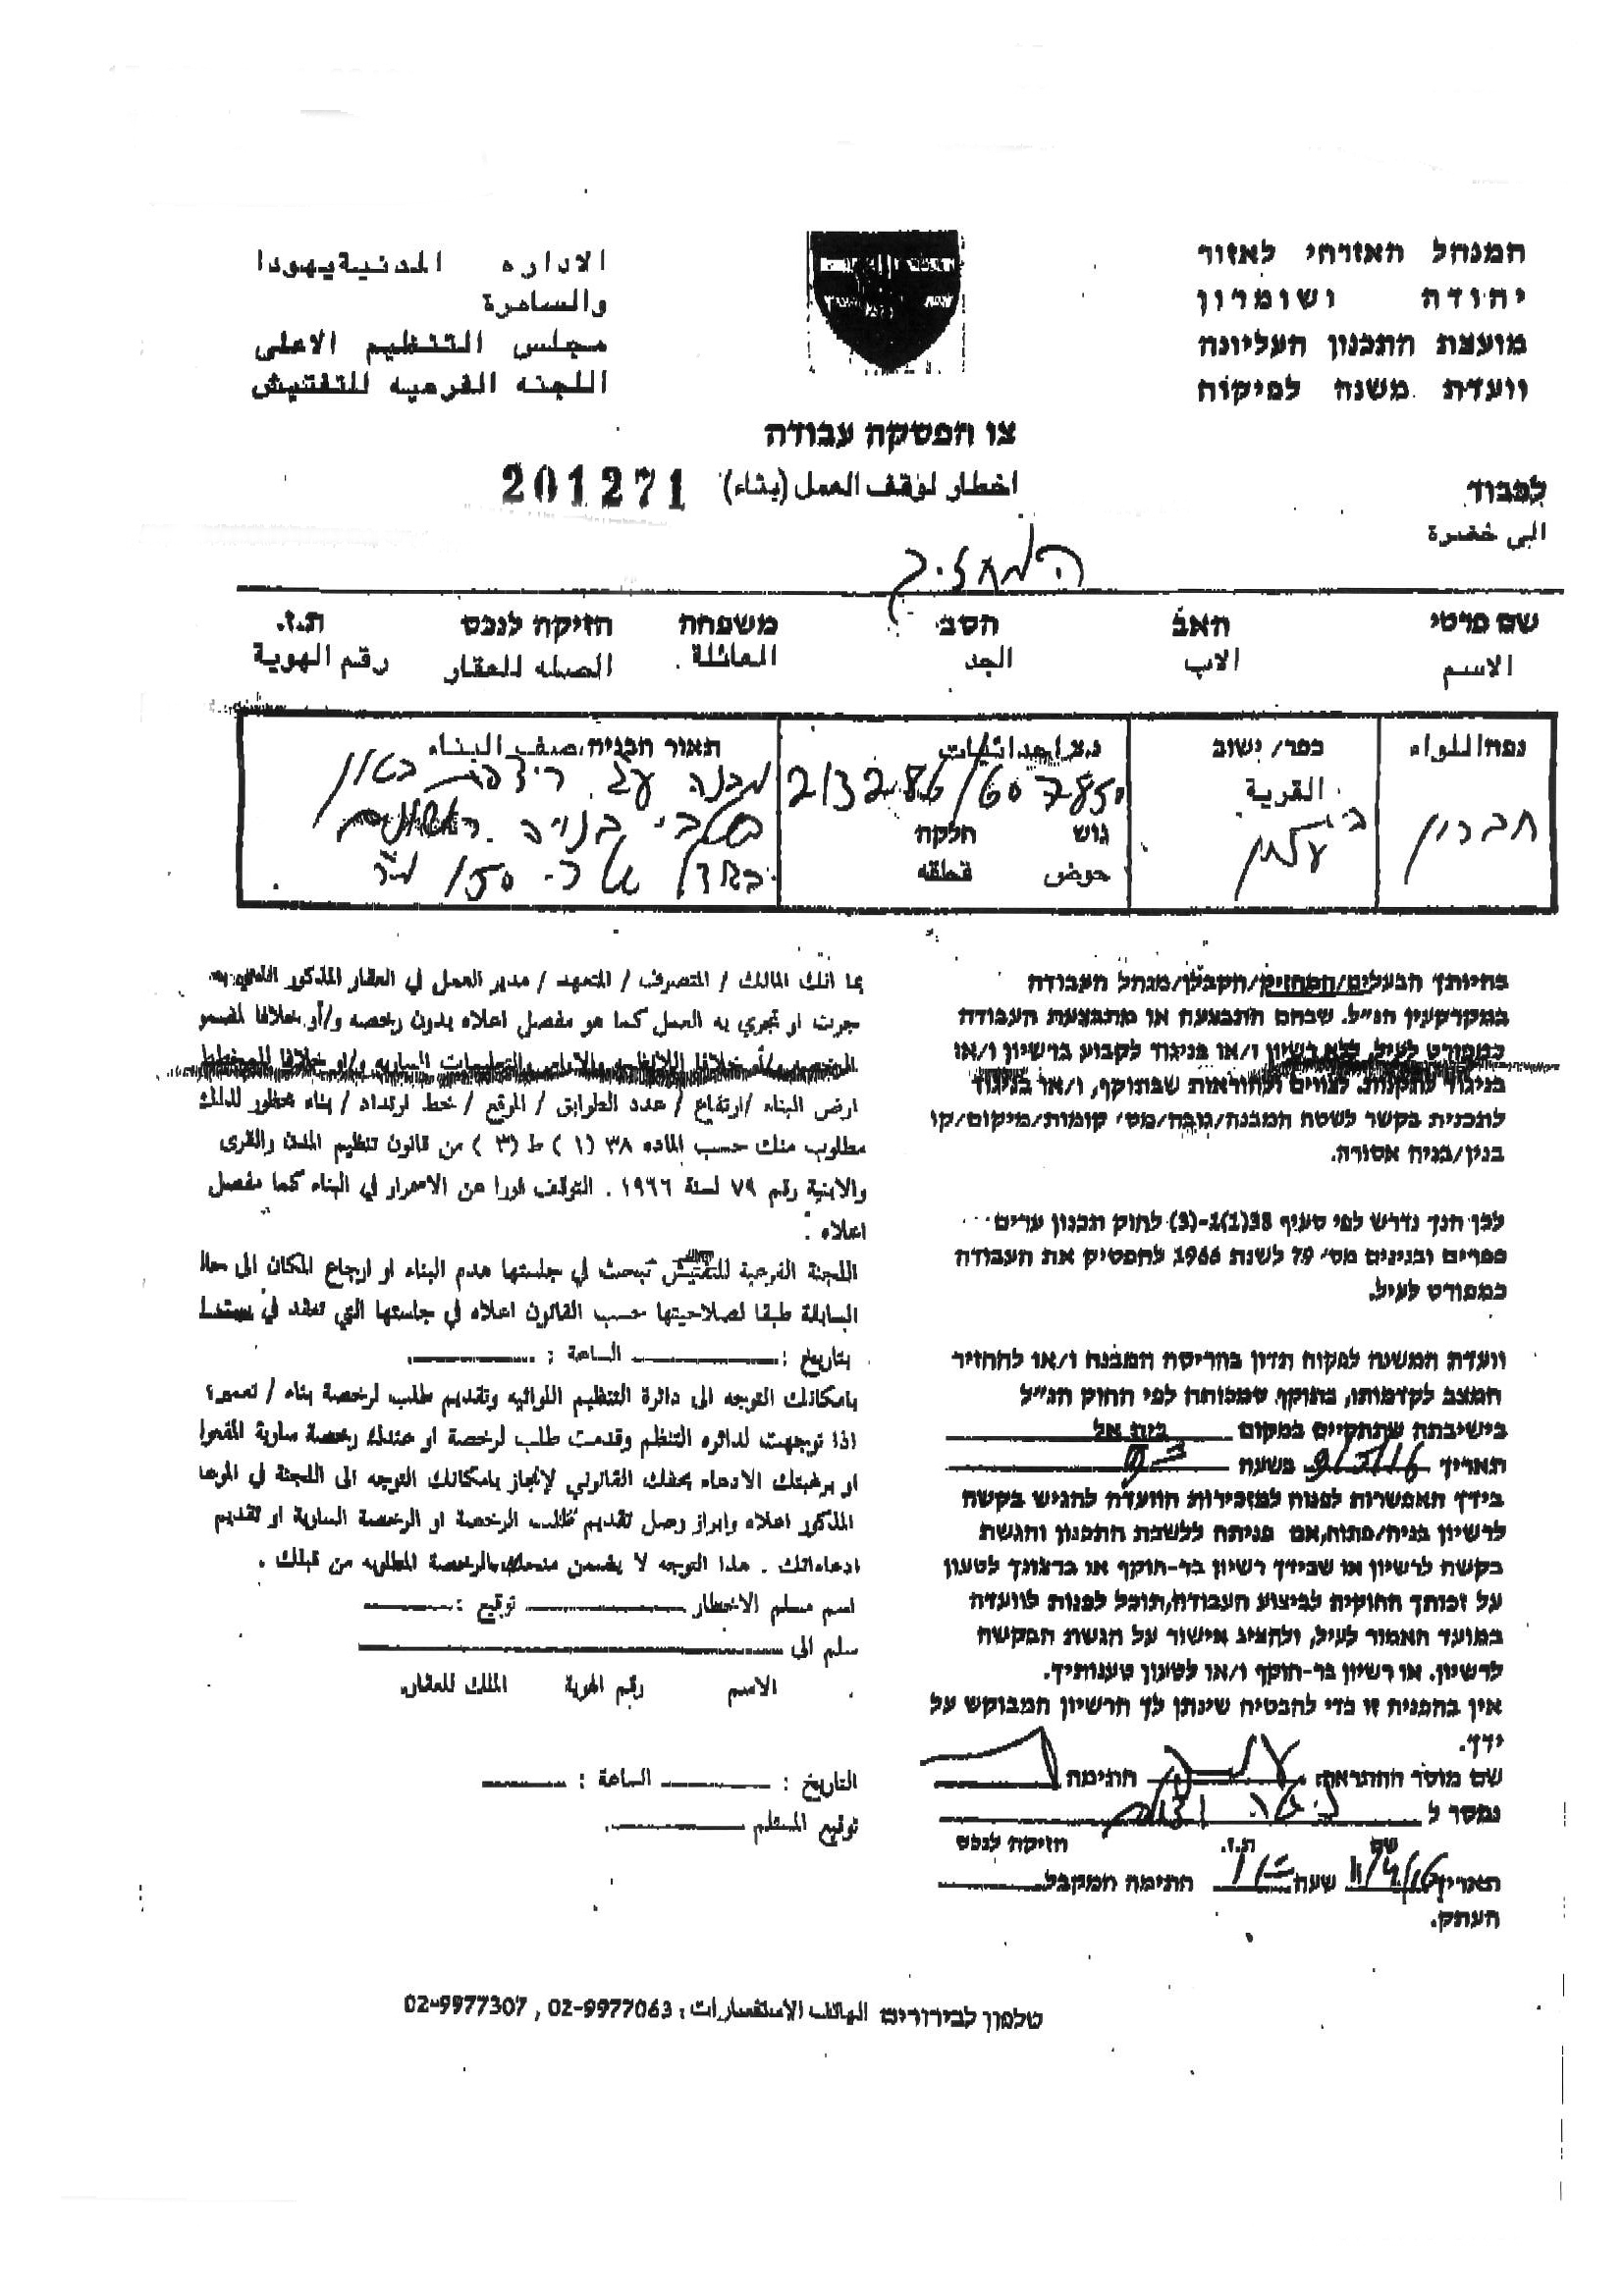 המנהל האזרחי לאזור
יהודה ושומרון
מועצת התכנון העליונה
וועדת משנה לפיקוח
الاداره المدنية يهودا
والسامرة
مجلس التنظيم الاعلى
اللجنه الفرعيه للتفتيش
צו הפסקת עבודה
اخطار لوقف العمل (بناء) 201271
לכבוד
الى حضرة
המחזיק
שם פרטי האב הסב משפחה חזיקה לנכס ת.ז.
الاسم الاب الجد العائلة الصله للعقار رقم الهوية
נפה/اللواء
חברון
כפר/ ישוב
القرية
נ.צ/احداثيات
213286/607850
גוש חלקה
حوض قطعه
תאור הבניה/صنف البناء
מבנה על רצפת בטון
בשלבי בנייה ראשונים
בגודל של כ- 150 מ"ר
בהיותך הבעלים/המחזיק/הקבלן/מנהל העבודה
במקרקעין הנ"ל. שבהם התבצעה או מתבצעת העבודה
כמפורט לעיל, ללא רשיון ו/או בניגוד לקבוע ברשיון ו/או
בניגוד לתקנות, לצווים ולהוראות שבתוקף, ו/או בניגוד
לתכנית בקשר לשטח המבנה/גובה/מס' קומות/מיקום/קו
בנין/בניה אסורה.
לכן הנך נדרש לפי סעיף 38(1)ו-(3) לחוק תכנון ערים
כפרים ובנינים מס' 79 לשנת 1966 להפסיק את העבודה
כמפורט לעיל.
וועדת המשנה לפקוח תדון בהריסת המבנה ו/או להחזיר
המצב לקדמותו, בתוקף סמכותה לפי החוק הנ"ל
בישיבתה שתתקיים במקום בית אל
תאריך 9/5/16 בשעה
בידך האפשרות לפנות למזכירות הוועדה להגיש בקשה
לרשיון בניה/פתוח,אם פניתה ללשכת התכנון והגשת
בקשה לרשיון או שבידך רשיון בר-תוקף או ברצונך לטעון
על זכותך החוקית לביצוע העבודה,תוכל לפנות לוועדה
במועד האמור לעיל, ולהציג אישור על הגשת הבקשה
לרשיון, או רשיון בר-תוקף ו/או לטעון טענותיך.
אין בהפנית זו כדי להבטיח שינתן לך הרשיון המבוקש על
ידך.
שם מוסר ההתראה חתימה
נמסר ל
שם ת.ז. חזיקה לנכס
תאריך 11/4/16 שעה חתימה המקבל
העתק.
بما انك المالك / المتصرف / المتعهد / مدير العمل في العقار المذكور
جرت او تجري به العمل كما هو مفصل اعلاه بدون رخصه و/أو خلافا لمضمو
و/أو خلافا و/او خلافا للمخطط
ارض البناء /ارتفاع / عدد الطوابق / الموقع / خط ارتداد / بناء محظور لذلك
مطلوب منك حسب الماده ٣٨ (١) ط (٣) من قانون تنظيم المدن والقرى
والابنية رقم ٧٩ لسنة ١٩٦٦ . التوقف فورا عن الاستمرار في البناء كما مفصل
اعلاه .
اللجنة الفرعية للتفتيش تبحث في جلستها هدم البناء او ارجاع المكان الى حالا
السابقة طبقا لصلاحيتها حسب القانون اعلاه في جلستها التي تعقد في
بتاريخ : الساعة :
بامكانك التوجه الى دائرة التنظيم اللوائيه وتقديم طلب لرخصة بناء / تعمير؟
اذا توجهت لدائره التنظم وقدمت طلب لرخصة او عندك رخصة سارية المفعوا
او برغبتك الادعاء بحقك القانوني لإنجاز بامكانك التوجه الى اللجنة في الموعا
المذكور اعلاه وابراز وصل تقديم طلب الرخصة او الرخصة السارية او تقديم
ادعاءاتك . هذا التوجه لا يضمن منحك بالرخصة المطلوبه من قبلك .
اسم مسلم الاخطار توقيع :
سلم الى
الاسم رقم الهوية الملك للعقار.
التاريخ : الساعة :
توقيع المستلم
טלפון לבירורים الهاتف الاستفسارات : 02-9977063 , 02-9977307